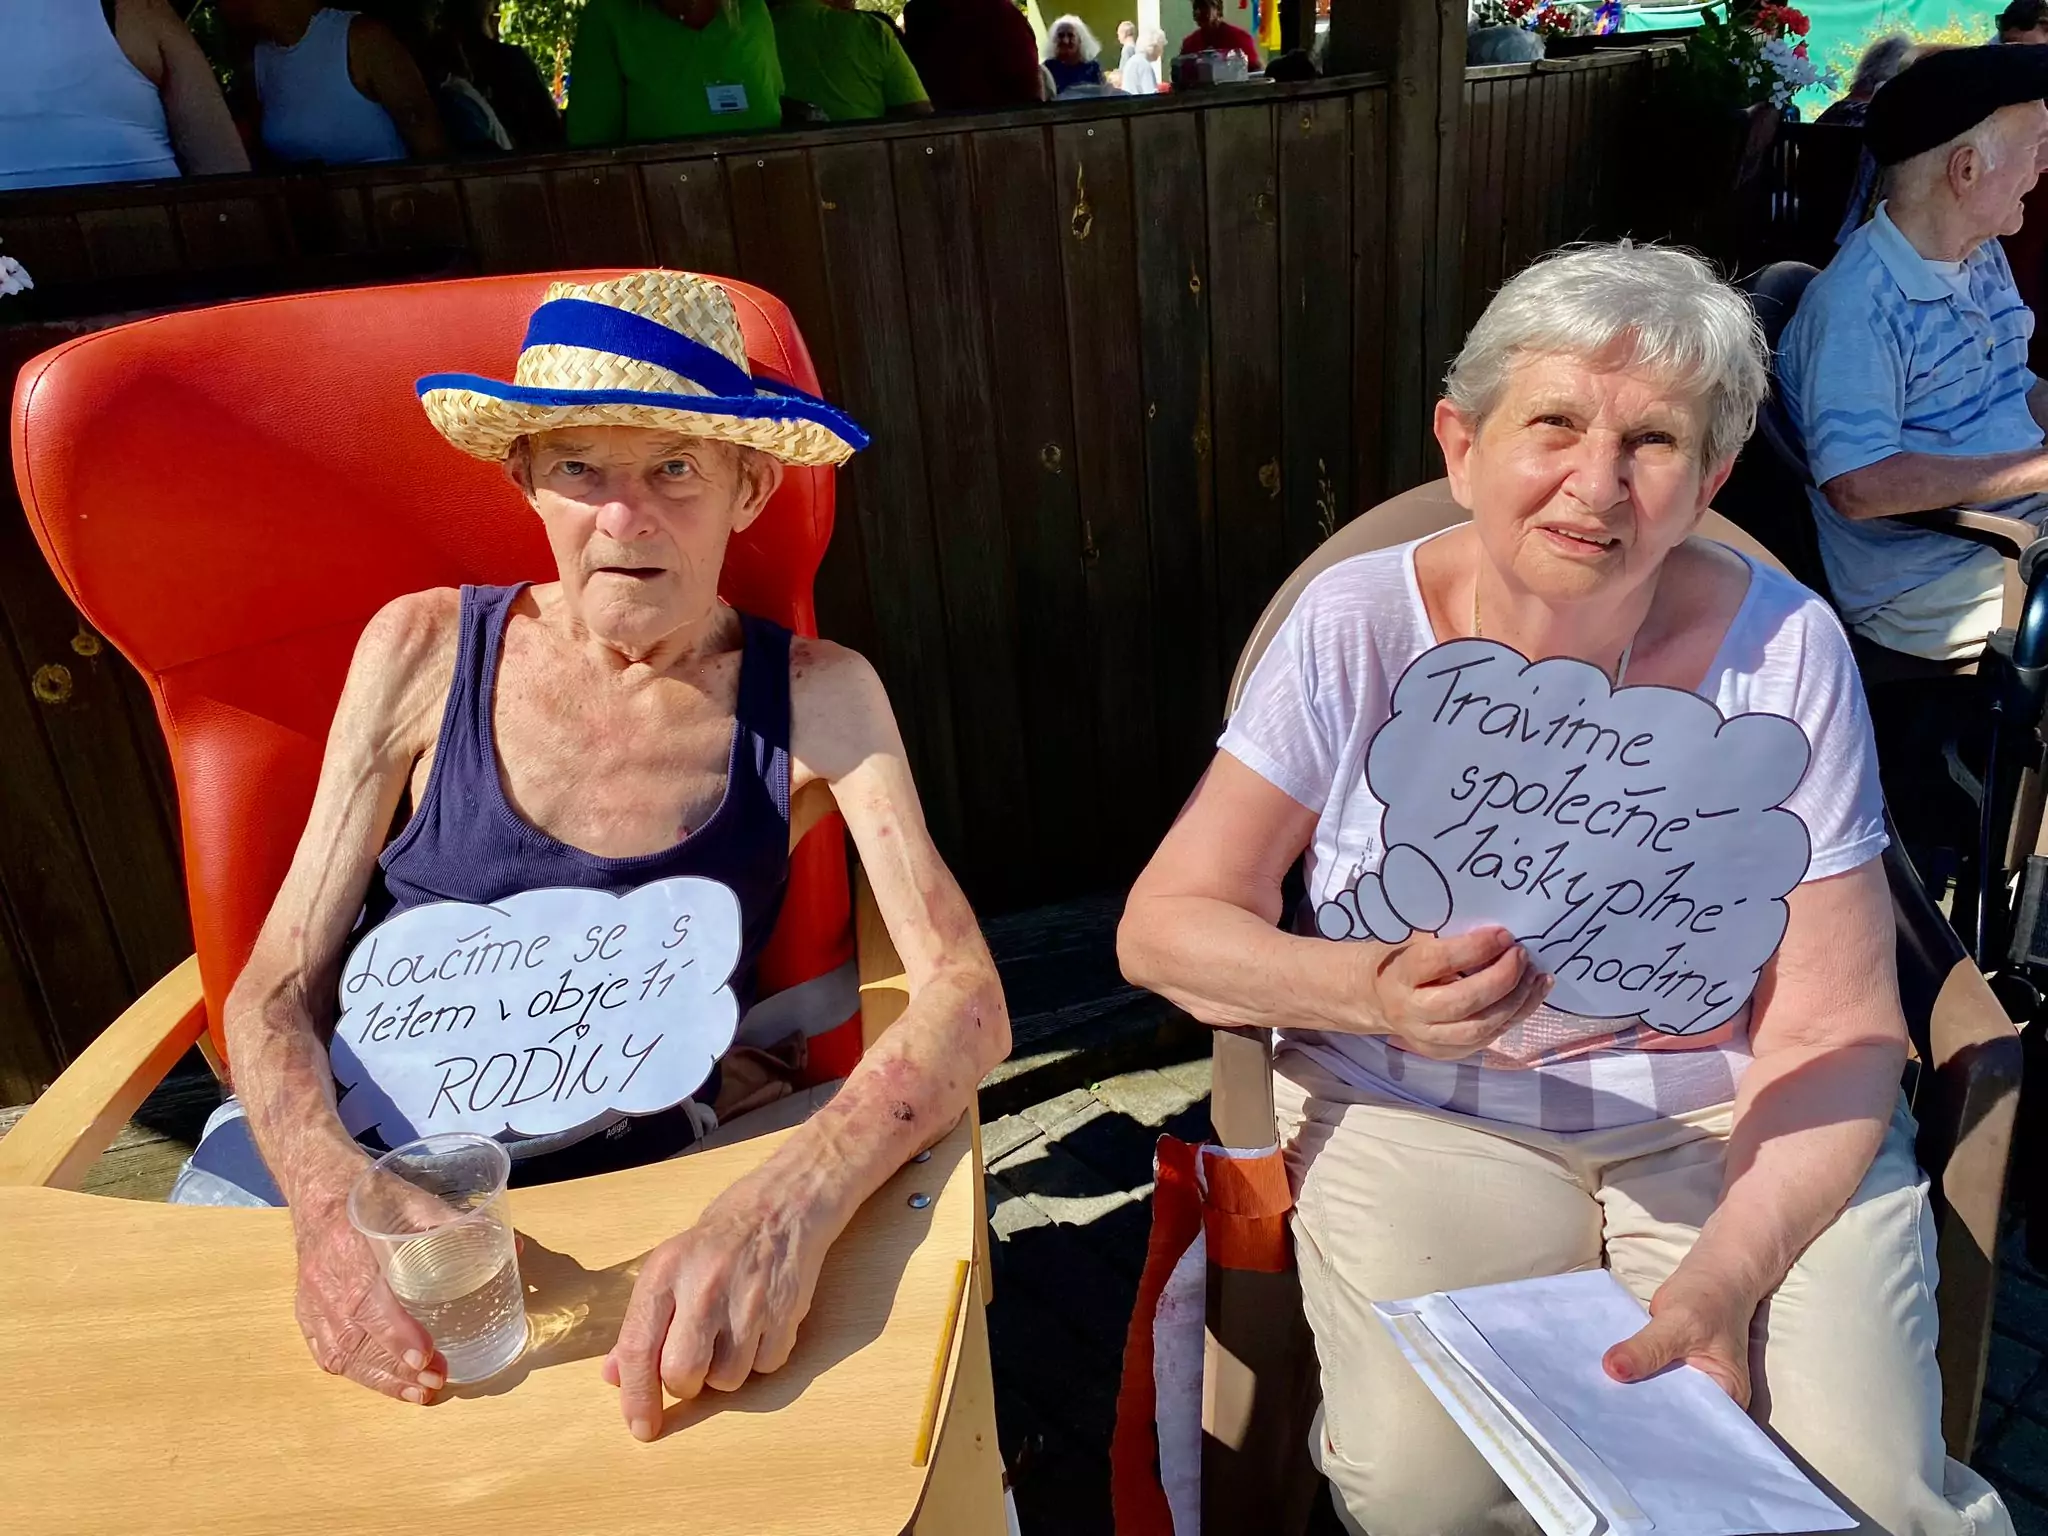 Loučíme se s
létem v objetí
RODINY
Trávíme
společně
láskyplné
hodiny